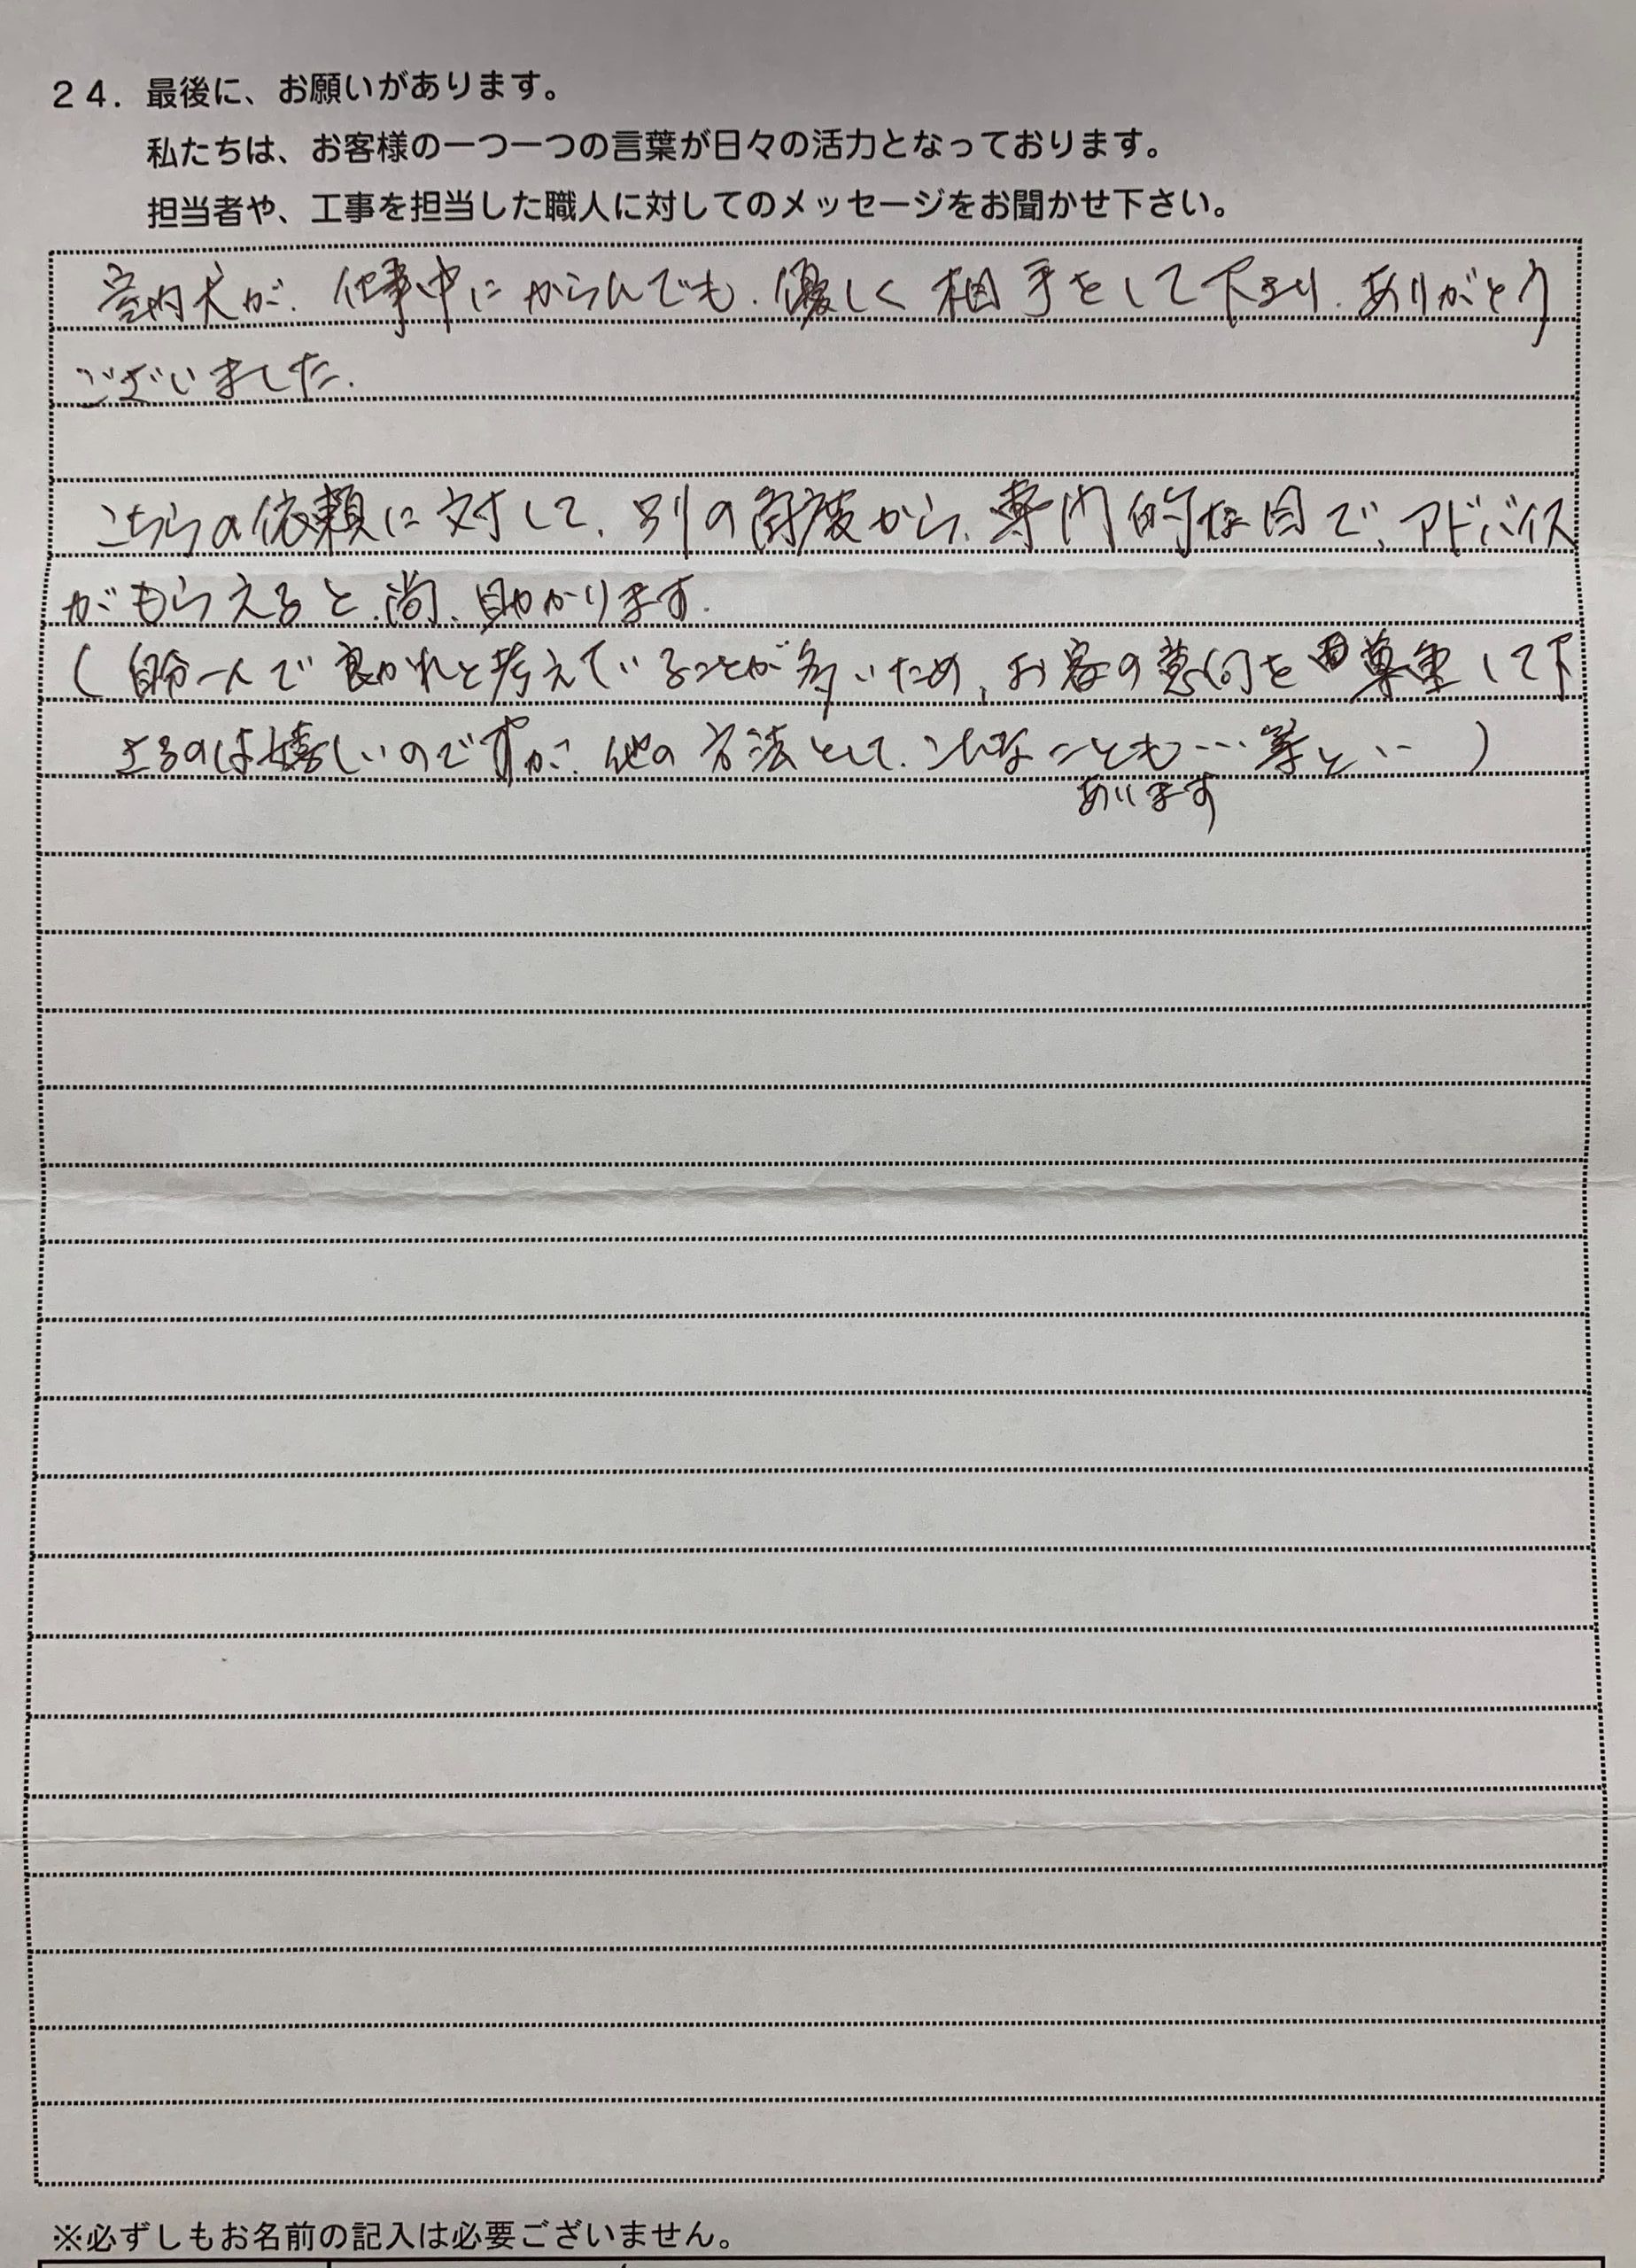 ２４．最後に、お願いがあります。
私たちは、お客様の一つ一つの言葉が日々の活力となっております。
担当者や、工事を担当した職人に対してのメッセージをお聞かせ下さい。
室内犬が、仕事中にからんでも、優しく相手をして下さり、ありがとう
ございました。
こちらの依頼に対して、別の角度から、専門的な目で、アドバイス
がもらえると、尚、助かります。
(自分一人で良かれと考えていることが多いため、お客の意向を尊重して下
さるのは嬉しいのですが、他の方法として、こんなことも…等と…)
あります
※必ずしもお名前の記入は必要ございません。